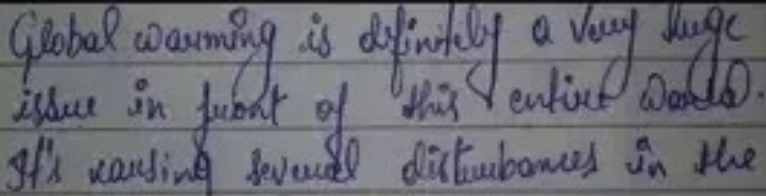 Global warming is definitely a very huge
issue in front of this entire World.
It's causing several disturbances in the